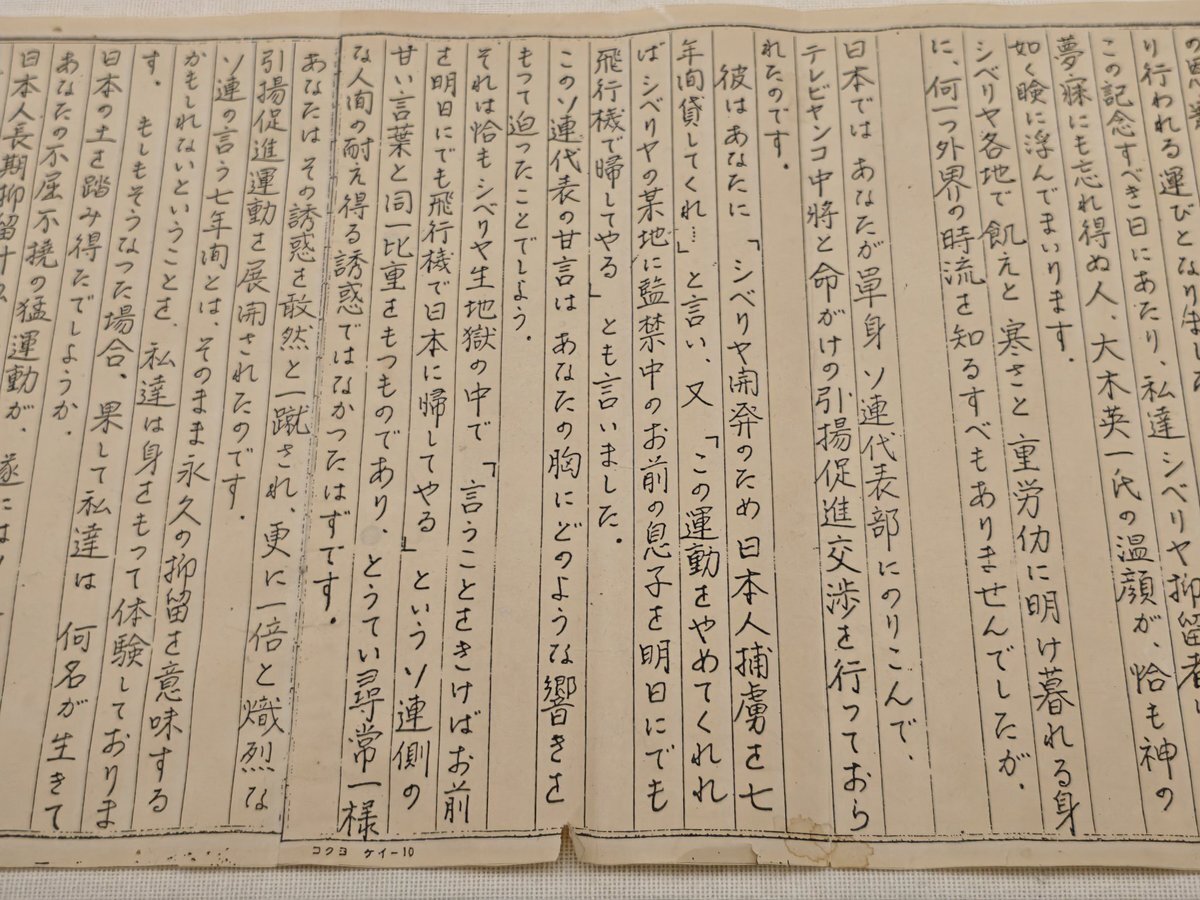 り行われる運びとなりました
この記念すべき日にあたり、私達シベリヤ抑留者に
夢寐にも忘れ得ぬ人、大木英一氏の温顔が、恰も神の
如く瞼に浮んでまいります．
シベリヤ各地で飢えと寒さと重労仂に明け暮れる身
に、何一つ外界の時流を知るすべもありませんでしたが．
日本では あなたが単身 ソ連代表部にのりこんで．
テレビヤンコ中将と命がけの引揚促進交渉を行っておら
れたのです．
彼はあなたに「シベリヤ開発のため日本人捕虜を七
年間貸してくれ…」と言い、又「この運動をやめてくれれ
ばシベリヤの某地に監禁中のお前の息子を明日にでも
飛行機で帰してやる」とも言いました．
このソ連代表の甘言は あなたの胸にどのような響きを
もつて迫ったことでしよう．
それは恰もシベリヤ生地獄の中で「言うことをきけばお前
を明日にでも飛行機で日本に帰してやる」というソ連側の
甘い言葉と同一比重をもつものであり、とうてい尋常一様
な人間の耐え得る誘惑ではなかつたはずです．
あなたはその誘惑を敢然と一蹴され、更に一倍と熾烈な
引揚促進運動を展開されたのです．
ソ連の言う七年間とは、そのまま永久の抑留を意味する
かもしれないということを、私達は身をもつて体験しておりま
す． もしもそうなった場合、果して私達は 何名が生きて
日本の土を踏み得たでしようか．
あなたの不屈不撓の猛運動が、遂には
日本人長期抑留
コクヨ ケイ-10